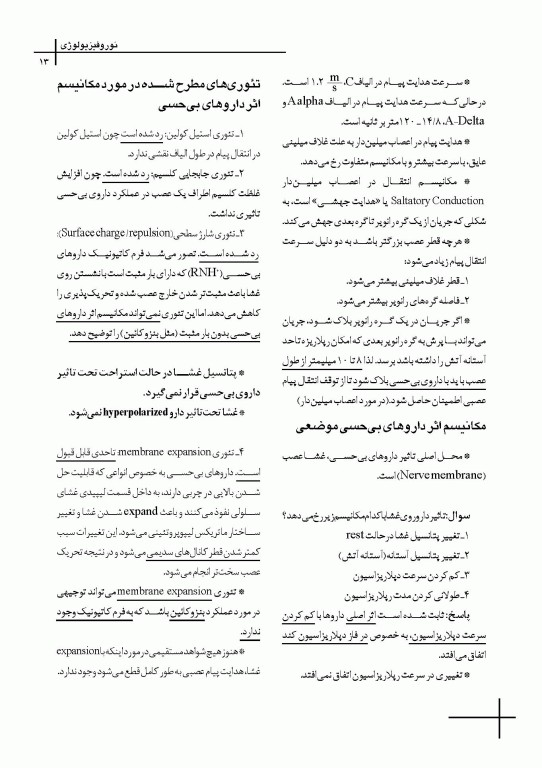 نوروفیزیولوژی
۱۳
* سرعت هدایت پیام در الیاف C، ۱.۲ m/s است.
در حالی‌که سرعت هدایت پیام در الیاف Aalpha و
A-Delta، ۱۴/۸ـ۱۲۰ متر بر ثانیه است.
* هدایت پیام در اعصاب میلین‌دار به علت غلاف میلینی
عایق، با سرعت بیشتر و با مکانیسم متفاوت رخ می‌دهد.
* مکانیسم انتقال در اعصاب میلین‌دار
Saltatory Conduction یا «هدایت جهشی» است، به
شکلی که جریان از یک گره رانویر تا گره بعدی جهش می‌کند.
* هرچه قطر عصب بزرگتر باشد به دو دلیل سرعت
انتقال پیام زیاد می‌شود:
۱ـ قطر غلاف میلینی بیشتر می‌شود.
۲ـ فاصله گره‌های رانویر بیشتر می‌شود.
* اگر جریان در یک گره رانویر بلاک شود، جریان
می‌تواند با پرش به گره رانویر بعدی که امکان رپلاریزه تا حد
آستانه آتش را داشته باشد برسد. لذا ۸ تا ۱۰ میلیمتر از طول
عصب باید با داروی بی‌حسی بلاک شود تا از توقف انتقال پیام
عصبی اطمینان حاصل شود.(در مورد اعصاب میلین‌دار)
مکانیسم اثر داروهای بی‌حسی موضعی
* محل اصلی تاثیر داروهای بی‌حسی، غشا عصب
(Nerve membrane) است.
سوال: تاثیر دارو روی غشا با کدام مکانیسم زیر رخ می‌دهد؟
۱ـ تغییر پتانسیل غشا در حالت rest
۲ـ تغییر پتانسیل آستانه (آستانه آتش)
۳ـ کم کردن سرعت دپلاریزاسیون
۴ـ طولانی کردن مدت رپلاریزاسیون
پاسخ: ثابت شده است اثر اصلی داروها با کم کردن
سرعت دپلاریزاسیون، به خصوص در فاز دپلاریزاسیون کند
اتفاق می‌افتد.
* تغییری در سرعت رپلاریزاسیون اتفاق نمی‌افتد.
تئوری‌های مطرح شده در مورد مکانیسم
اثر داروهای بی‌حسی
۱ـ تئوری استیل کولین: رد شده است چون استیل کولین
در انتقال پیام در طول الیاف نقشی ندارد.
۲ـ تئوری جابجایی کلسیم: رد شده است. چون افزایش
غلظت کلسیم اطراف یک عصب در عملکرد داروی بی‌حسی
تاثیری نداشت.
۳ـ تئوری شارژ سطحی (Surface charge / repulsion):
رد شده است. تصور می‌شد فرم کاتیونیک داروهای
بی‌حسی (RNH⁺) که دارای بار مثبت است با نشستن روی
غشا باعث مثبت‌تر شدن خارج عصب شده و تحریک‌پذیری را
کاهش می‌دهد. اما این تئوری نمی‌تواند مکانیسم اثر داروهای
بی‌حسی بدون بار مثبت (مثل بنزوکائین) را توضیح دهد.
* پتانسیل غشا در حالت استراحت تحت تاثیر
داروی بی‌حسی قرار نمی‌گیرد.
* غشا تحت تاثیر دارو hyperpolarized نمی‌شود.
۴ـ تئوری membrane expansion: تا حدی قابل قبول
است. داروهای بی‌حسی به خصوص انواعی که قابلیت حل
شدن بالایی در چربی دارند، به داخل قسمت لیپیدی غشای
سلولی نفوذ می‌کنند و باعث expand شدن غشا و تغییر
ساختار ماتریکس لیپوپروتئینی می‌شود. این تغییرات سبب
کمتر شدن قطر کانال‌های سدیمی می‌شود و در نتیجه تحریک
عصب سخت‌تر انجام می‌شود.
* تئوری membrane expansion می‌تواند توجیهی
در مورد عملکرد بنزوکائین باشد که به فرم کاتیونیک وجود
ندارد.
* هنوز هیچ شواهد مستقیمی در مورد اینکه با expansion
غشا، هدایت پیام عصبی به‌طور کامل قطع می‌شود وجود ندارد.